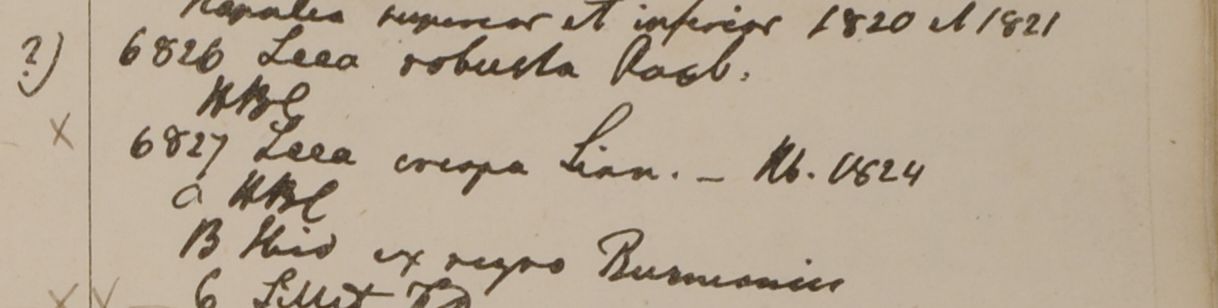 Napalia superior et inferior 1820 et 1821
?) 6826 Leea robusta Roxb.
HBC
x 6827 Leea crispa Linn. - Hb. 1824
a HBC
B Ibid ex regno Burmanico
6